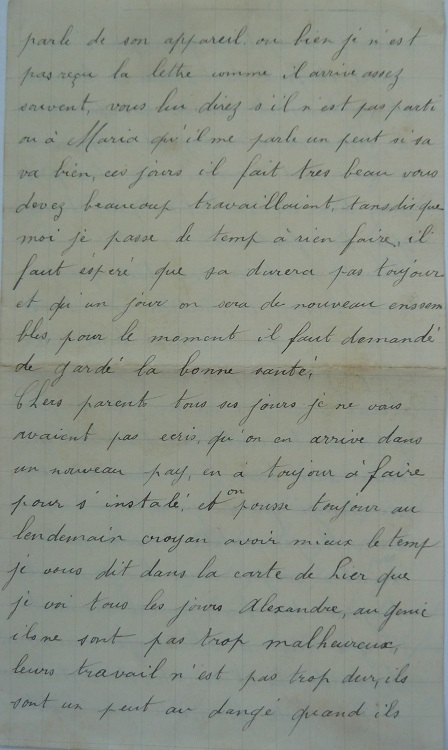 parle de son appareil. ou bien je n'est
pas reçu la lettre comme il arrive assez
souvent, vous lui direz s'il n'est pas parti
ou à Maria qu'il me parle un peut si sa
va bien, ces jours il fait tres beau vous
devez beaucoup travaillaient, tandisque
moi je passe le temp à rien faire, il
faut éspéré que sa durera pas toujour
et qu'un jour on sera de nouveau enssem
bles, pour le moment il faut demandé
de gardé la bonne santé,
Chers parents tous ses jours je ne vous
avaient pas ecris, qu'on en arrive dans
un nouveau pay, en à toujour à faire
pour s'instalé, et on pousse toujour au
lendemain croyan avoir mieux le temp
je vous dit dans la carte de hier que
je voi tous les jours Alexandre, au genie
ils ne sont pas trop malheureux,
leurs travail n'est pas trop dur, ils
sont un peut au dangé quand ils